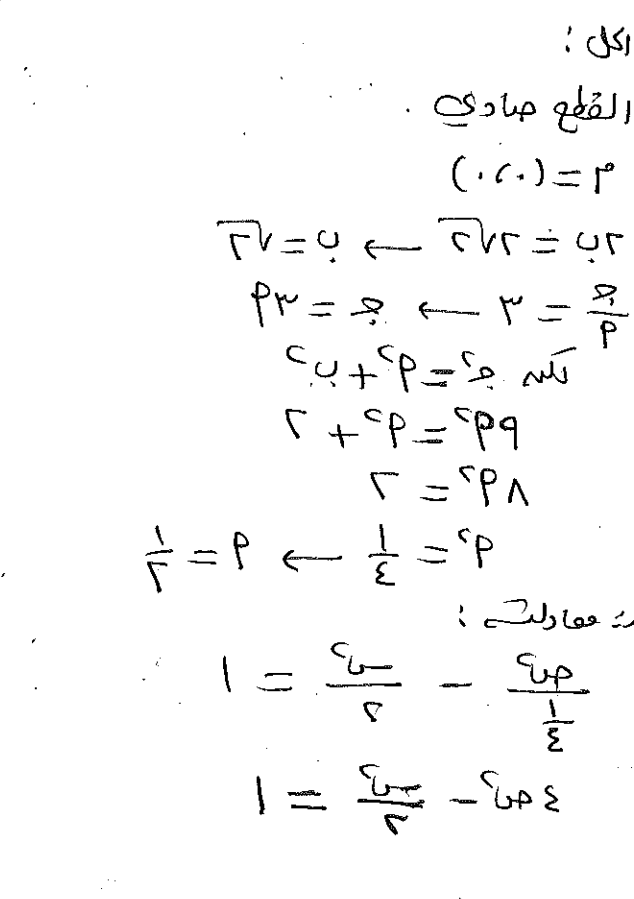 الحل :
القطع صادي .
م = (٠،٠)
٢ب = ٢√٢ ← ب = √٢
جـ/أ = ٣ ← جـ = ٣أ
لكن جـ² = أ² + ب²
٩أ² = أ² + ٢
٨أ² = ٢
أ² = ١/٤ ← أ = ١/٢
∴ معادلته :
ص²/(١/٤) − س²/٢ = ١
٤ص² − س²/٢ = ١